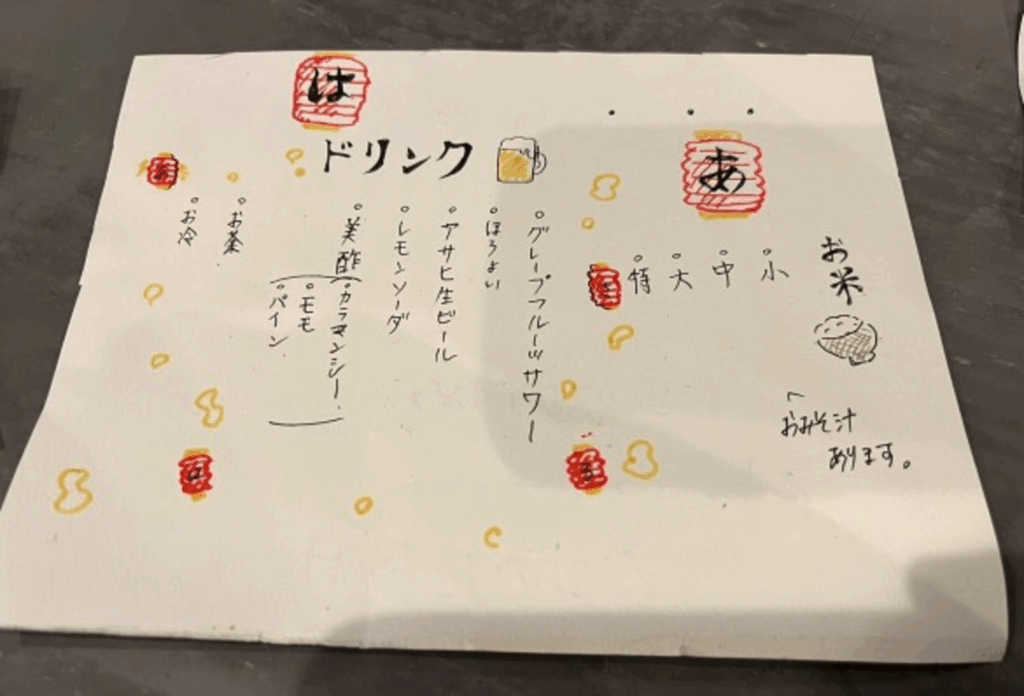 は
あ
お米
。小
。中
。大
。特
おみそ汁
あります。
ドリンク
。グレープフルーツサワー
。ほろよい
。アサヒ生ビール
。レモンソーダ
。美酢
(。カラマンシー.
。モモ
。パイン)
。お茶
。お冷